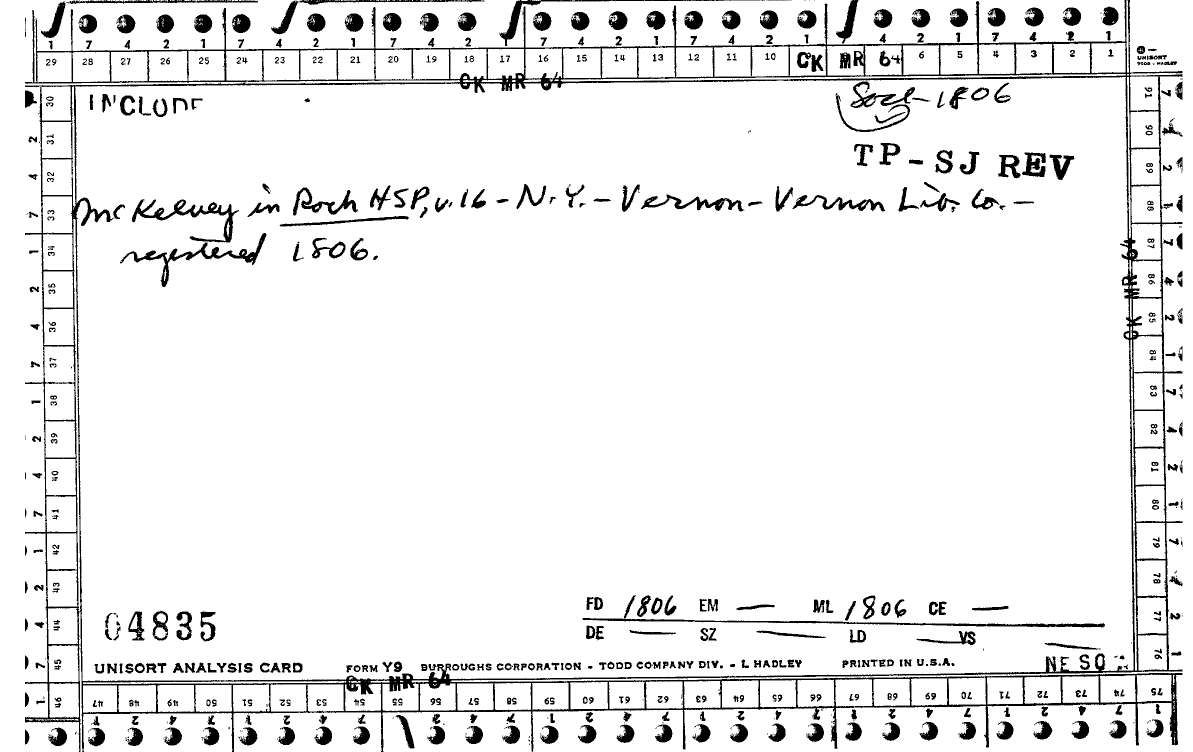 7 4 2 1 7 4 2 1 7 4 2 1 7 4 2 1 7 4 2 1 7 4 2 1
29 28 27 26 25 24 23 22 21 20 19 18 17 16 15 14 13 12 11 10 CK MR 64 6 5 4 3 2 1
UNISORT
TODD - HADLEY
CK MR 64
INCLUDE
Socl-1806
TP-SJ REV
McKelvey in Roch HSP, v.16 - N.Y. - Vernon - Vernon Lib. Co. -
registered 1806.
30 31 32 33 34 35 36 37 38 39 40 41 42 43 44 45 46
91 90 89 88 87 86 85 84 83 82 81 80 79 78 77 76 75
CK MR 64
FD 1806 EM — ML 1806 CE —
04835
DE — SZ — LD — VS —
NE SO
UNISORT ANALYSIS CARD FORM Y9 BURROUGHS CORPORATION - TODD COMPANY DIV. - L HADLEY PRINTED IN U.S.A.
CK MR 64
47 48 49 50 51 52 53 54 55 56 57 58 59 60 61 62 63 64 65 66 67 68 69 70 71 72 73 74 75